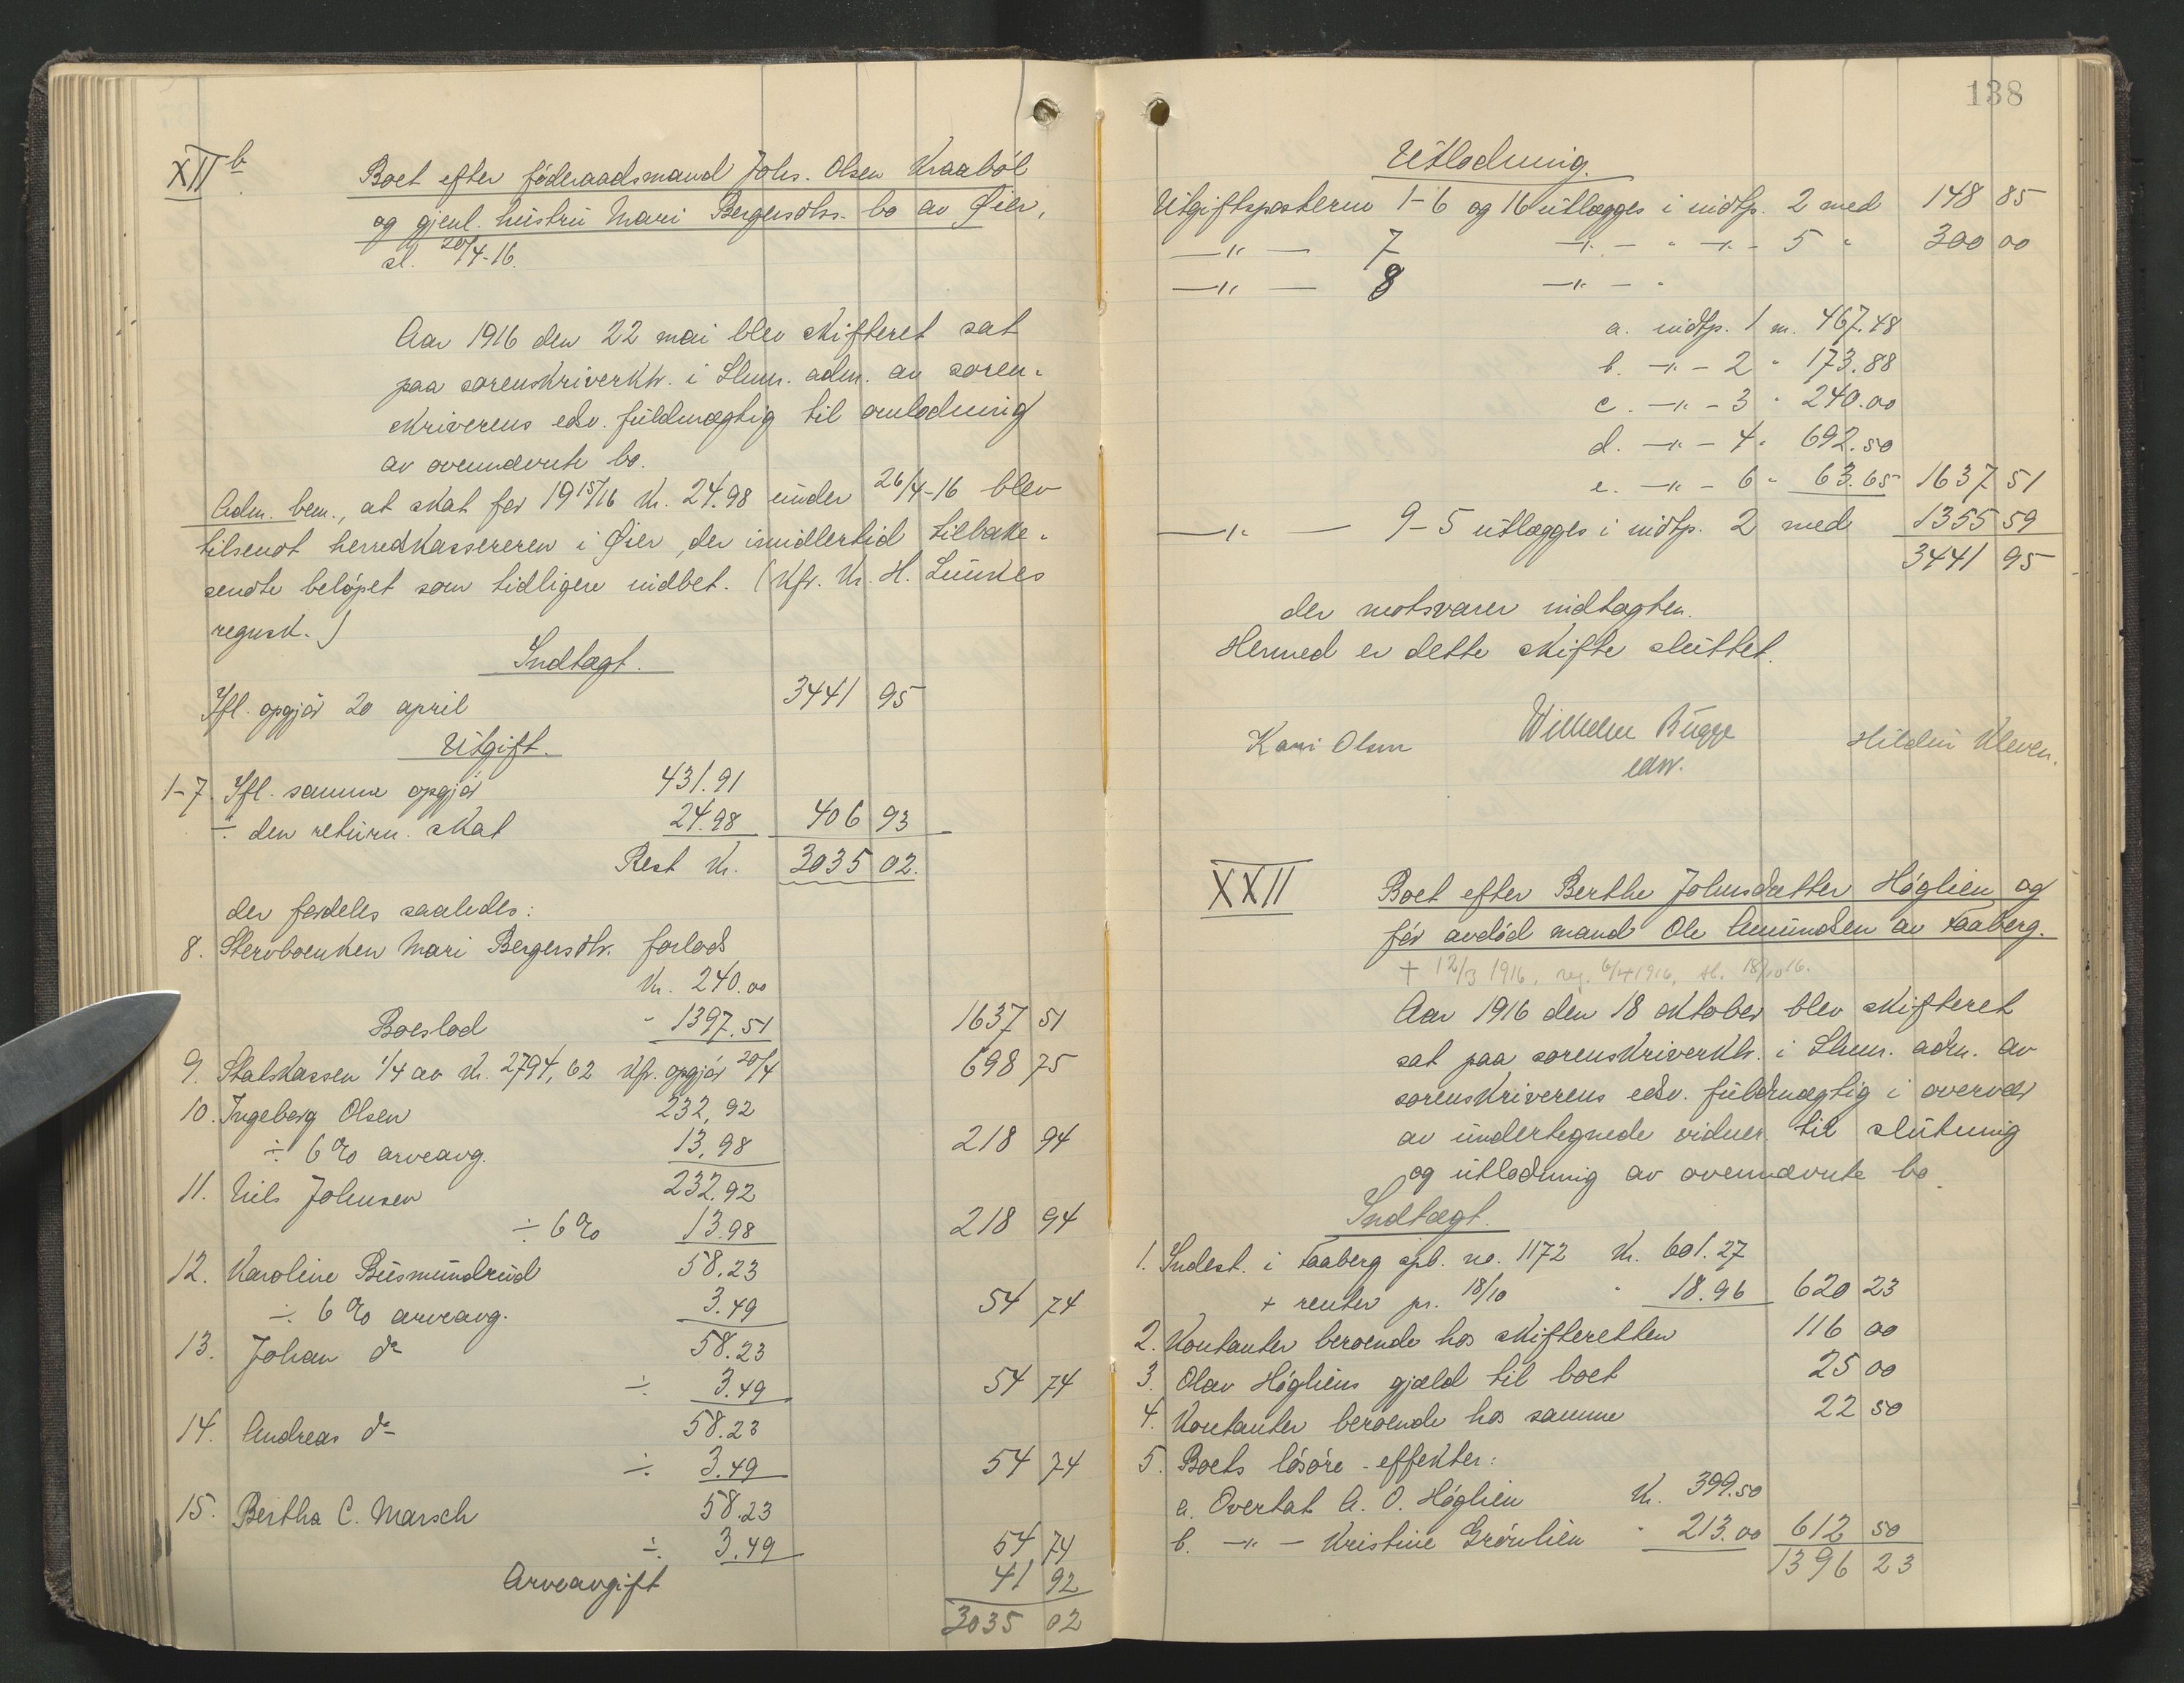 XII b
Boet efter föderaadsmand Johs. Olsen Kraaböl
og gjenl. hustru Mari Bergersdtr. bo av Øier,
sl. 20/4-16.
Aar 1916 den 22 mai blev skifteret sat
paa sorenskriverktr. i Lhmr. adm. av soren-
skriverens edsv. fuldmægtig til omlodning
av ovennævnte bo.
Adm. bem., at skat for 1915/16 kr. 24.98 under 26/4-16 blev
tilsendt herredskassereren i Øier, der imidlertid tilbake-
sendte beløpet som tidligere indbet. (Kfr. Kr. H. Lunkes
regnsk.)
Indtægt.
Ifl. opgjör 20 april 3441 95
Utgift.
1-7 Ifl. samme opgjör 431.91
÷ den return. skat 24.98 406 93
Rest kr. 3035 02.
der fordeles saaledes:
8. Stervboenken Mari Bergersdtr. forlods
kr. 240.00
Boeslod " 1397.51 1637 51
9. Statskassen 1/4 av kr. 2794,62 kfr. opgjör 20/4 698 75
10. Ingeborg Olsen 232,92
÷ 6% arveavg. 13,98 218 94
11. Nils Johnsen 232.92
÷ 6% 13.98 218 94
12. Karoline Busmundrud 58.23
÷ 6% arveavg. 3.49 54 74
13. Johan do 58.23
÷ 3.49 54 74
14. Andreas do 58.23
÷ 3.49 54 74
15. Bertha C. Marsch 58.23
÷ 3.49 54 74
Arveavgift 41 92
3035 02
138
Utlodning.
Utgiftsposterne 1-6 og 16 utlægges i indtp. 2 med 148 85
—"— 7 —"— " —"— 5 " 300 00
—"— 8 —"— "
a. indtp. 1 m. 467.48
b. —"— 2 " 173.88
c. —"— 3 " 240.00
d. —"— 4 " 692.50
e. —"— 6 " 63.65 1637 51
—"— 9-5 utlægges i indtp. 2 med 1355 59
3441 95
der motsvarer indtægten.
Hermed er dette skifte sluttet.
Kari Olsen Wilhelm Bugge Hildur Kleven.
edsv.
XXII
Boet efter Berthe Johnsdatter Höglien og
för avdöd mand Ole Amundsen av Faaberg.
+ 12/3 1916, reg. 6/4 1916, sl. 18/10 16.
Aar 1916 den 18 oktober blev skifteret
sat paa sorenskriverktr. i Lhmr. adm. av
sorenskriverens edsv. fuldmægtig i overvær
av undertegnede vidner til slutning
og utlodning av ovennævnte bo.
Indtægt.
1. Indest. i Faaberg spb. no. 1172 kr. 601.27
+ renter pr. 18/10 " 18.96 620 23
2. Kontanter beroende hos skifteretten 116 00
3. Olav Högliens gjæld til boet 25 00
4. Kontanter beroende hos samme 22 50
5. Boets lösöre-effekter:
a. Overtat A. O. Höglien kr. 399.50
b. —"— Kristine Grönlien " 213.00 612 50
1396 23